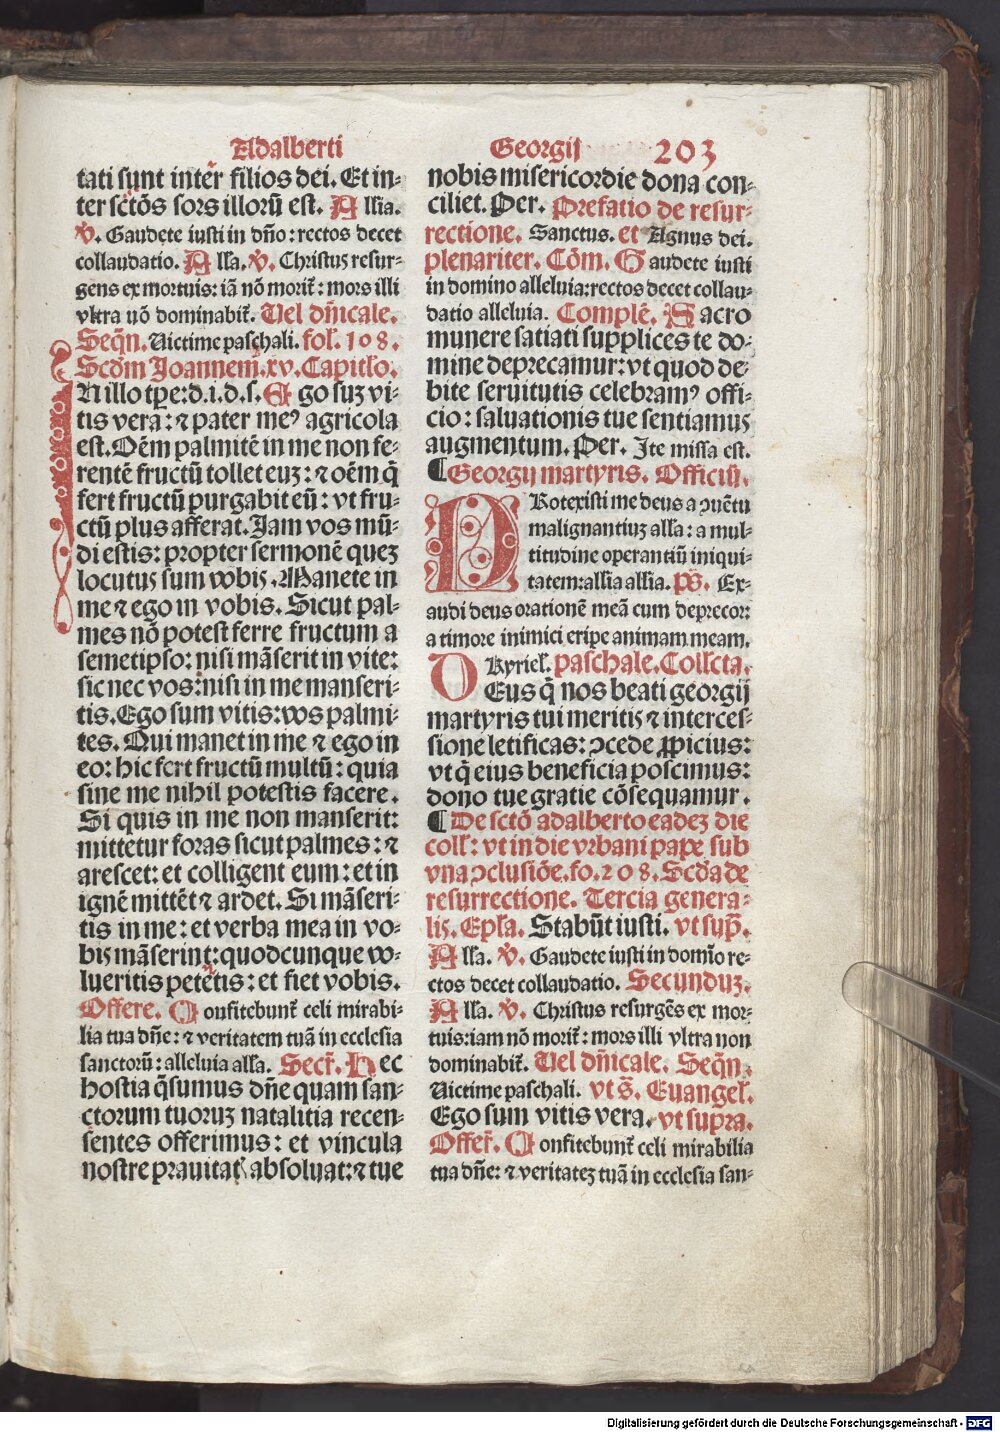 Adalberti
Georgij 203
tati sunt inter̄ filios dei. Et in-
ter sctōs sors illorū est. Alľia.
℣. Gaudete iusti in dn̄o: rectos decet
collaudatio. Alľa. ℣. Christus resur-
gens ex mortuis: iā nō morit̄: mors illi
vltra nō dominabit̄. Uel dn̄icale.
Seqn̄. Uictime paschali. fol. 108.
Scd̄m Joannem. xv. Capitľo.
IN illo tꝑe: d. i. d. s. Ego suꝫ vi-
tis vera: ⁊ pater meꝰ agricola
est. Oēm palmitē in me non fe-
rentē fructū tollet euꝫ: ⁊ oēm q̄
fert fructū purgabit eū: vt fru-
ctū plus afferat. Jam vos mū-
di estis: propter sermonē queꝫ
locutus sum vobis. Manete in
me ⁊ ego in vobis. Sicut pal-
mes nō potest ferre fructum a
semetipso: nisi māserit in vite:
sic nec vos: nisi in me manseri-
tis. Ego sum vitis: vos palmi-
tes. Qui manet in me ⁊ ego in
eo: hic fert fructū multū: quia
sine me nihil potestis facere.
Si quis in me non manserit:
mittetur foras sicut palmes: ⁊
arescet: et colligent eum: et in
ignē mittēt ⁊ ardet. Si māseri-
tis in me: et verba mea in vo-
bis māserint: quodcunque vo-
lueritis petetis: et fiet vobis.
Offere. Confitebunt̄ celi mirabi-
lia tua dn̄e: ⁊ veritatem tuā in ecclesia
sanctorū: alleluia alľa. Secr̄. Hec
hostia q̄sumus dn̄e quam san-
ctorum tuoruꝫ natalitia recen-
sentes offerimus: et vincula
nostre prauitatꝭ absoluat: ⁊ tue
nobis misericordie dona con-
ciliet. Per. Prefatio de resur-
rectione. Sanctus. et Agnus dei.
plenariter. Cōm. Gaudete iusti
in domino alleluia: rectos decet collau-
datio alleluia. Complē. Sacro
munere satiati supplices te do-
mine deprecamur: vt quod de-
bite seruitutis celebramꝰ offi-
cio: saluationis tue sentiamus
augmentum. Per. Jte missa est.
¶ Georgij martyris. Officiū.
PRotexisti me deus a ꝯuētu
malignantiuꝫ alľa: a mul-
titudine operantiū iniqui-
tatem: alľia alľia. p̄s. Ex-
audi deus orationē meā cum deprecor:
a timore inimici eripe animam meam.
Kyrieľ. paschale. Colľcta.
DEus q̄ nos beati georgij
martyris tui meritis ⁊ interces-
sione letificas: ꝯcede ꝓpicius:
vt q̄ eius beneficia poscimus:
dono tue gratie cōsequamur.
¶ De sctō adalberto eadeꝫ die
colľ: vt in die vrbani pape sub
vna ꝯclusiōe. fo. 208. Scd̄a de
resurrectione. Tercia genera-
lis. Epľa. Stabūt iusti. vt sup̄.
Alľa. ℣. Gaudete iusti in domīo re-
ctos decet collaudatio. Secunduꝫ.
Alľa. ℣. Christus resurgēs ex mor-
tuis: iam nō morit̄: mors illi vltra non
dominabit̄. Uel dn̄icale. Seqn̄.
Uictime paschali. vt s̄. Euangeľ.
Ego sum vitis vera. vt supra.
Offer̄. Confitebunt̄ celi mirabilia
tua dn̄e: ⁊ veritateꝫ tuā in ecclesia san-
Digitalisierung gefördert durch die Deutsche Forschungsgemeinschaft - DFG